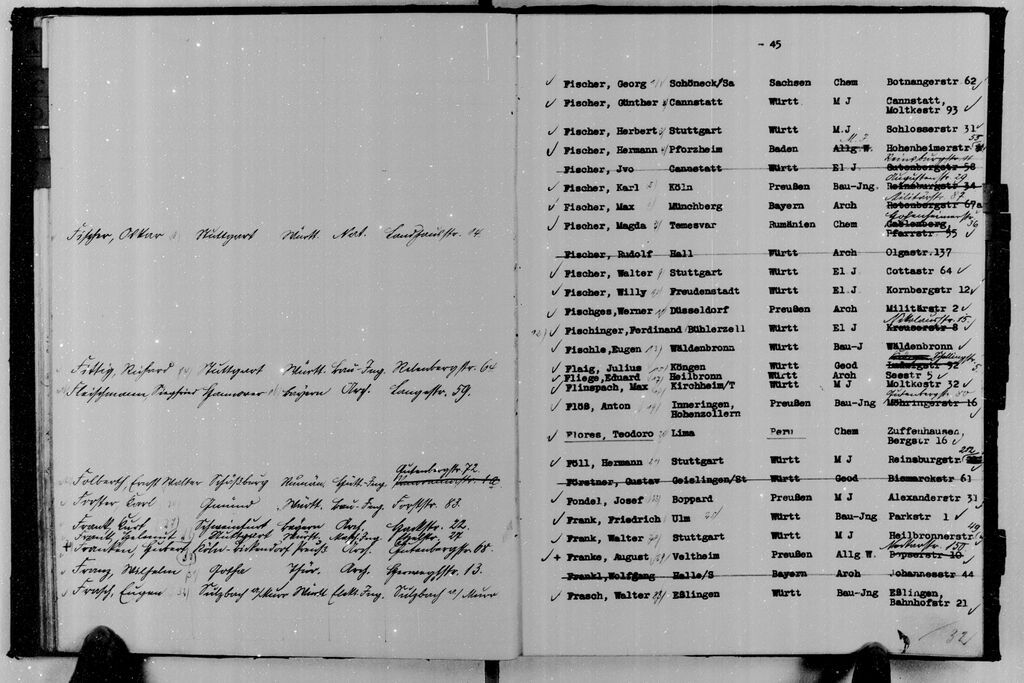 Fischer, Oskar Stuttgart Württ. Nat. Landhausstr. 14
Fittig, Richard Stuttgart Württ. Bau-Ing. Rotenbergstr. 64
Fleischmann, Bayern Arch. Langestr. 59.
Gutenbergstr. 72.
Folberth, Ernst Walter Schäßburg Rumän.
Forster Carl Gmünd Württ. Bau-Ing. Forststr. 83.
Frank, Curt Schweinfurt Bayern Arch. 22.
Frank, Helmut Stuttgart Württ. 27
+ Franken, Köln Preuß Arch. Gutenbergstr. 68.
Franz, Wilhelm Gotha Thür. Arch. Herweghstr. 13.
Frasch, Eugen Sulzbach a/Murr Württ Elekt. Ing. Sulzbach a/Murr
- 45
Fischer, Georg Schöneck/Sa Sachsen Chem Botnangerstr 62
Fischer, Günther Cannstatt Württ M J Cannstatt,
Moltkestr 93
Fischer, Herbert Stuttgart Württ M.J Schlosserstr 31
M.J 55
Fischer, Hermann Pforzheim Baden Allg W. Hohenheimerstr
Reinsburgstr
Fischer, Jvo Cannstatt Württ El J Gutenbergstr 58
Augustenstr 29
Fischer, Karl Köln Preußen Bau-Jng. Reinsburgstr 34
Militärstr. 87
Fischer, Max Münchberg Bayern Arch Rotenbergstr 67a
Hohenheimerstr
Fischer, Magda Temesvar Rumänien Chem Gablenberg, 36
Pfarrstr 35
Fischer, Rudolf Hall Württ Arch Olgastr.137
Fischer, Walter Stuttgart Württ El J Cottastr 64
Fischer, Willy Freudenstadt Württ El.J Kornbergstr 12
Fischges,Werner Düsseldorf Preußen Arch Militärstr 2
Nikolausstr. 15
Fischinger,Ferdinand Bühlerzell Württ El J Kreuserstr 8
Fischle,Eugen Wäldenbronn Württ Bau-J Wäldenbronn
Flaig, Julius Köngen Württ Geod Ludwigstr 52 5
Fliege,Eduard Heilbronn Württ Arch Seestr 5
Flinspach, Max Kirchheim/T Württ M J Moltkestr 32
Gutenbergstr 50
Flöß, Anton Inneringen, Preußen Bau-Jng Möhringerstr 16
Hohenzollern
Flores, Teodoro Lima Peru Chem Zuffenhausen,
Bergstr 16
212
Föll, Hermann Stuttgart Württ M J Reinsburgstr
Förstner, Gustav Geislingen/St Württ Geod Bismarckstr 61
Fondel, Josef Boppard Preußen M J Alexanderstr 31
Frank, Friedrich Ulm Württ Bau-Jng Parkstr 1
49
Frank, Walter Stuttgart Württ M J Heilbronnerstr
Neckarstr. 150
+ Franke, August Veltheim Preußen Allg W. Bopserstr 10
Frankl,Wolfgang Halle/S Bayern Arch Johannesstr 44
Frasch, Walter Eßlingen Württ Bau-Jng Eßlingen,
Bahnhofstr 21
32